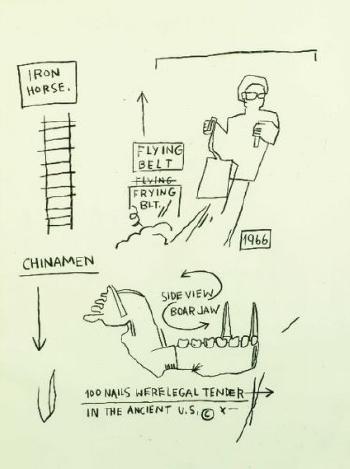 IRON
HORSE.
FLYING
BELT
FLYING
FRYING
BLT.
1966
CHINAMEN
SIDE VIEW
BOAR JAW
100 NAILS WERE LEGAL TENDER
IN THE ANCIENT U.S. ©